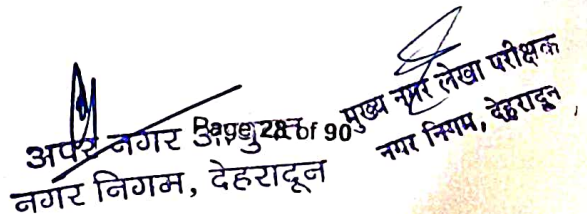 अपर नगर आयुक्त
नगर निगम, देहरादून
Page 28 of 90
मुख्य नगर लेखा परीक्षक
नगर निगम, देहरादून